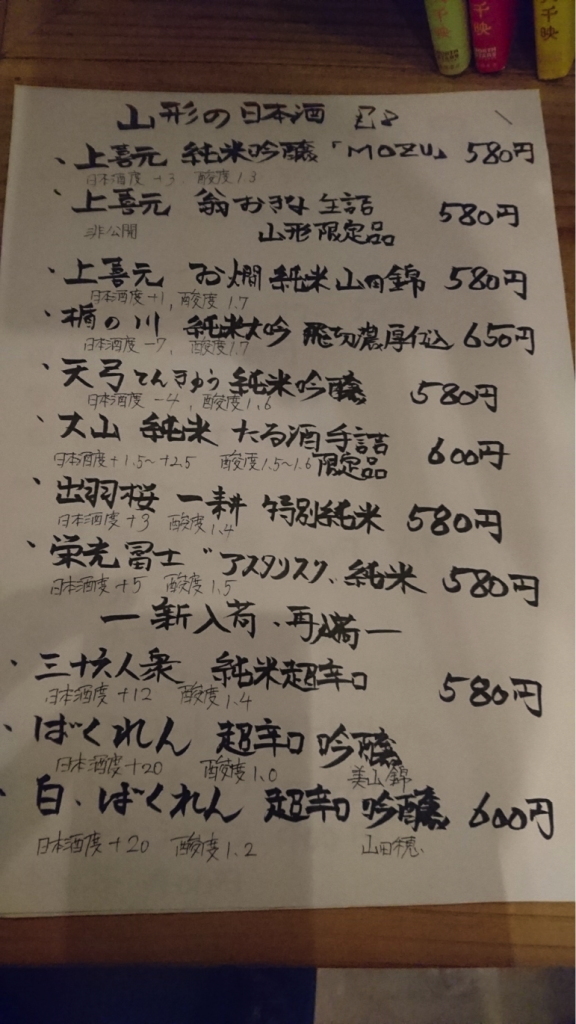 山形の日本酒
、上喜元 純米吟醸「MOZU」 580円
日本酒度+3、酸度1.3
、上喜元 翁おきな 生詰 580円
非公開 山形限定品
、上喜元 お燗純米山田錦 580円
日本酒度+1、酸度1.7
、楯の川 純米大吟 飛切濃厚仕込 650円
日本酒度-7、酸度1.7
、天弓てんきゅう純米吟醸 580円
日本酒度-4、酸度1.6
、大山 純米 たる酒手詰 600円
日本酒度+1.5~+2.5 酸度1.5~1.6 限定品
、出羽桜 一耕 特別純米 580円
日本酒度+3 酸度1.4
、栄光冨士 "アスタリスク、純米 580円
日本酒度+5 酸度1.5
―新入荷、再入荷―
、三十六人衆 純米超辛口 580円
日本酒度+12 酸度1.4
、ばくれん 超辛口 吟醸
日本酒度+20 酸度1.0 美山錦
、白、ばくれん 超辛口 吟醸 600円
日本酒度+20 酸度1.2 山田穂、